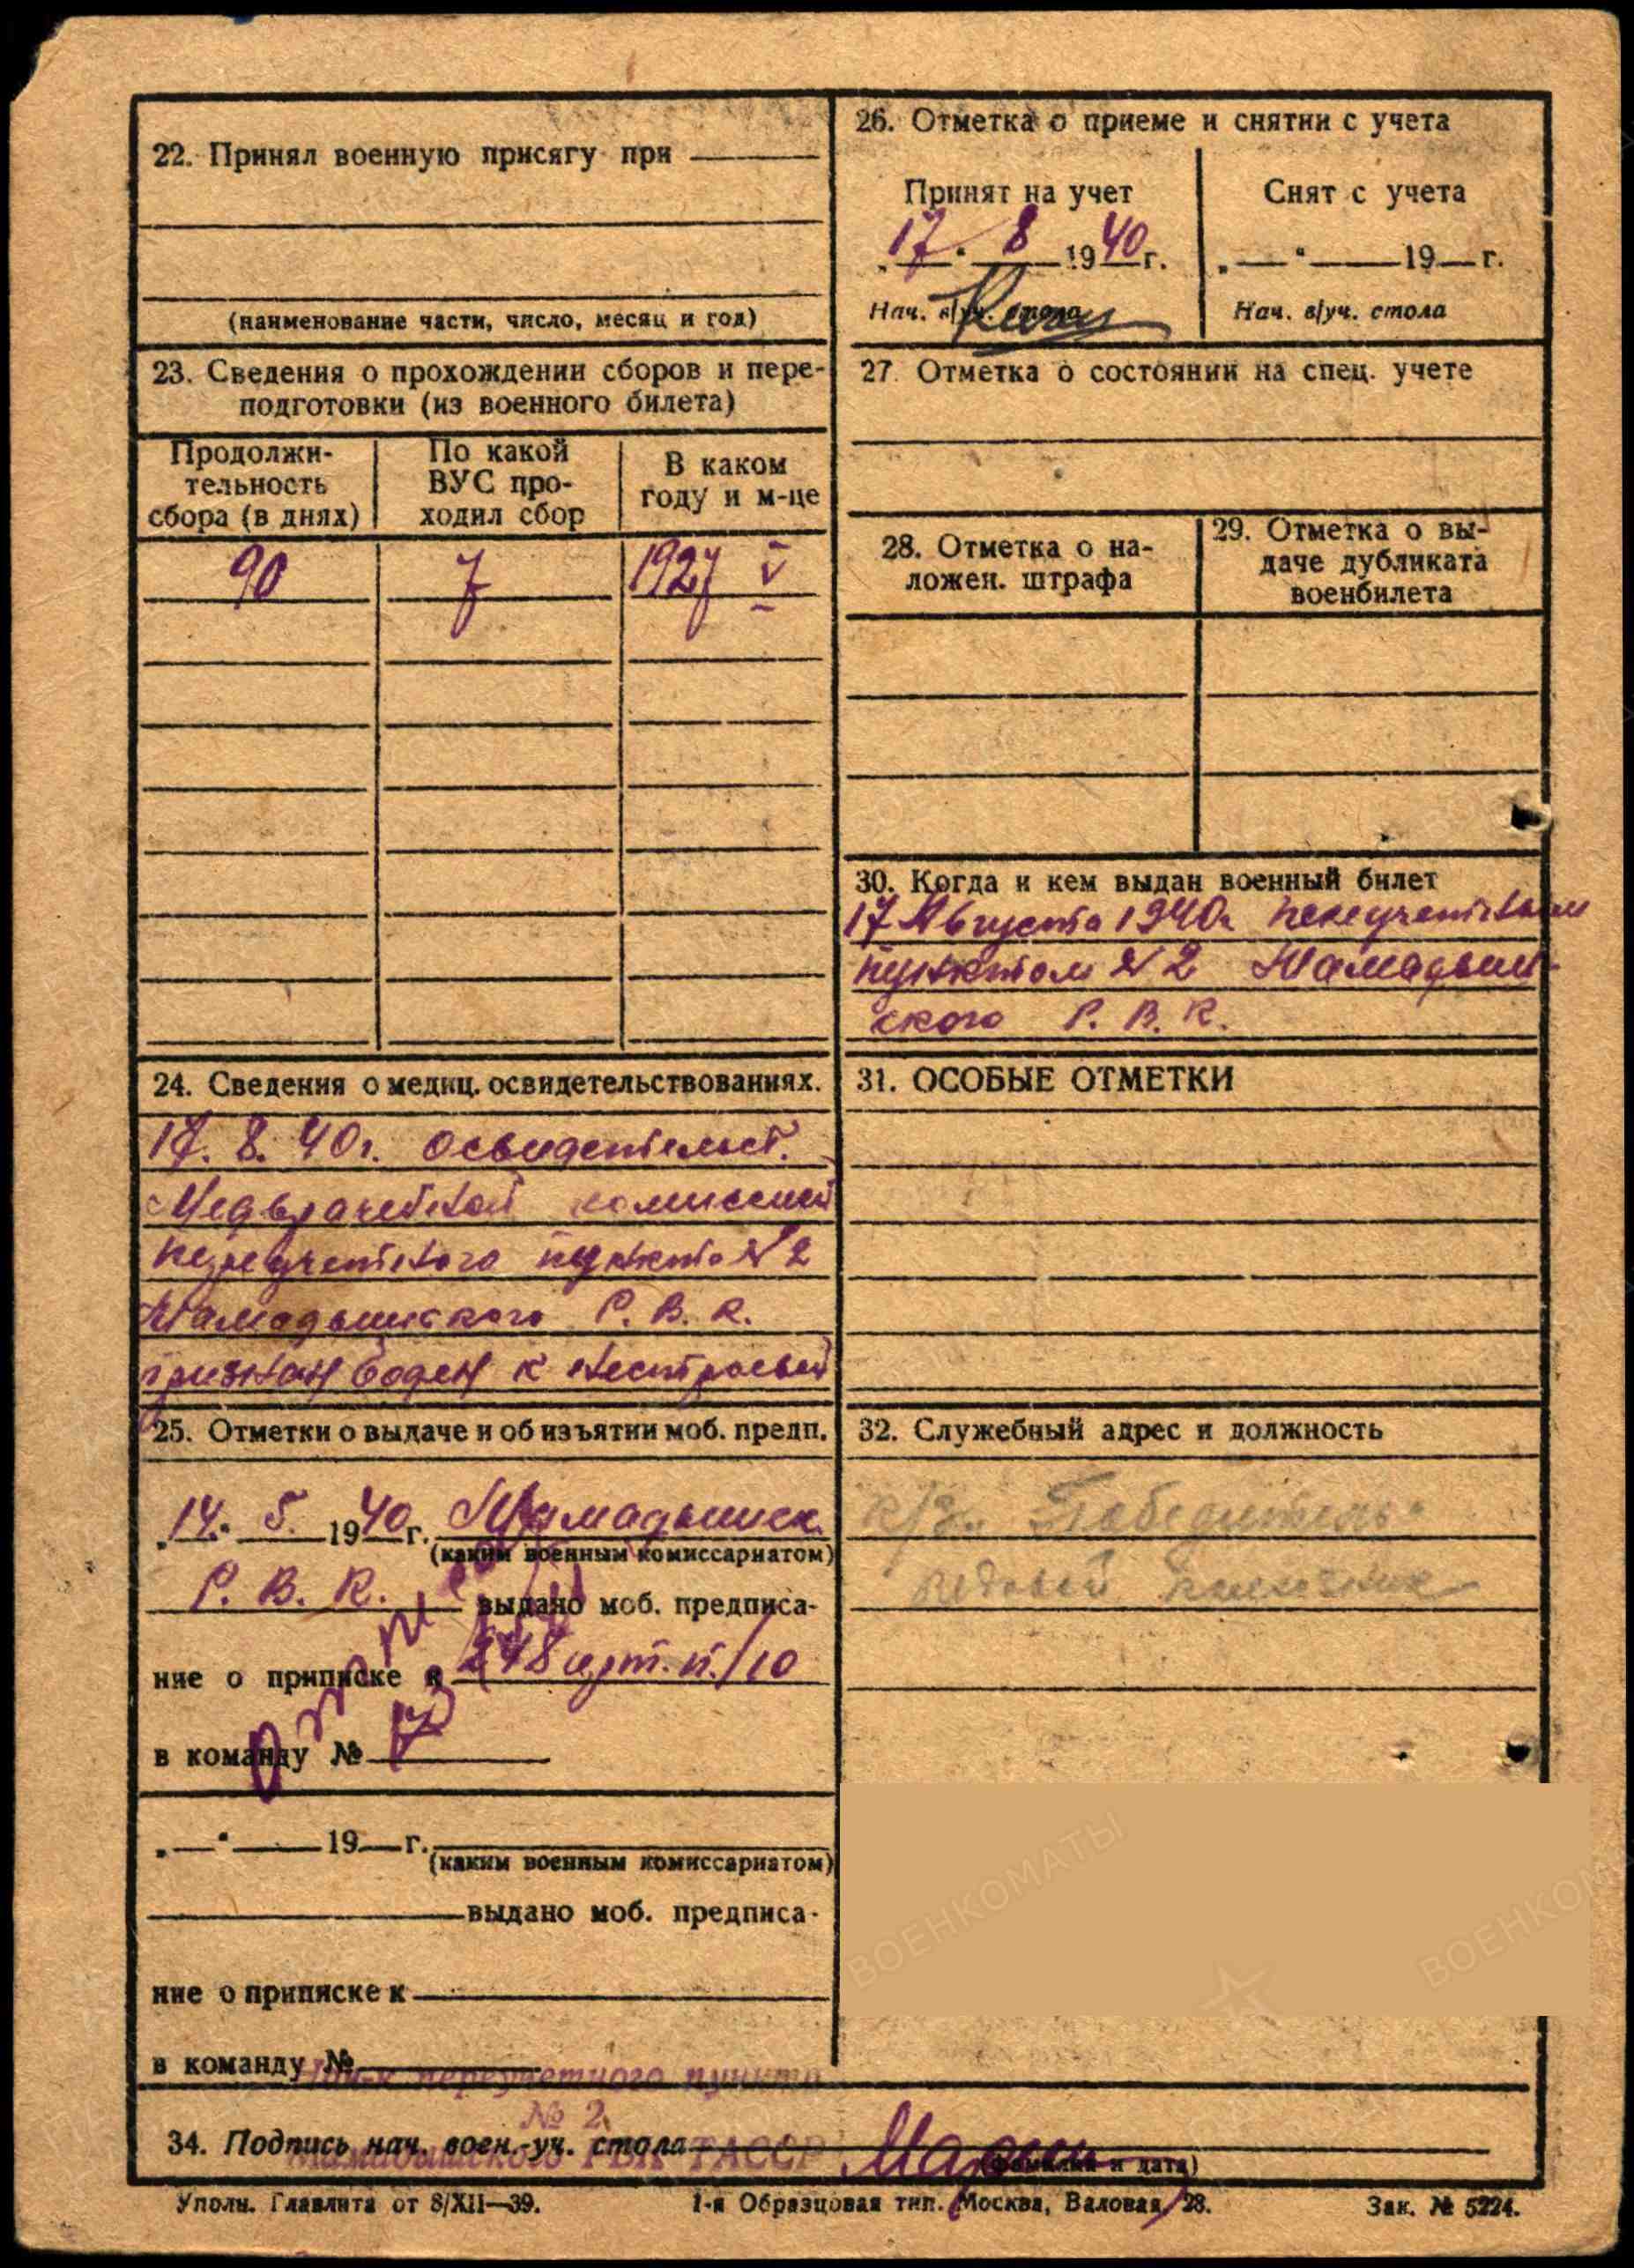 22. Принял военную присягу при
(наименование части, число, месяц и год)
23. Сведения о прохождении сборов и пере-
подготовки (из военного билета)
Продолжи-
тельность
сбора (в днях)
По какой
ВУС про-
ходил сбор
В каком
году и м-це
90 7 1927 V
24. Сведения о медиц. освидетельствованиях.
17. 8. 40г. освидетельст.
Медврачебной комиссией
переучетного пункта № 2
Мамадышского Р. В. К.
признан годен к нестроевой
25. Отметки о выдаче и об изъятии моб. предп.
„14“ 5. 1940 г. Мамадышск.
(каким военным комиссариатом)
Р. В. К. выдано моб. предписа-
ние о приписке к 248 /10
в команду № 173
„ “ 19 г.
(каким военным комиссариатом)
выдано моб. предписа-
ние о приписке к
в команду №
26. Отметка о приеме и снятии с учета
Принят на учет
„17“ 8 1940 г.
Нач. в/уч. стола
Снят с учета
„ “ 19 г.
Нач. в/уч. стола
27. Отметка о состоянии на спец. учете
28. Отметка о на-
ложен. штрафа
29. Отметка о вы-
даче дубликата
военбилета
30. Когда и кем выдан военный билет
17 Августа 1940г. переучетным
пунктом № 2 Мамадыш-
ского Р. В. К.
31. ОСОБЫЕ ОТМЕТКИ
32. Служебный адрес и должность
к/з. „Победитель“
рядовой
ВОЕНКОМАТЫ
Нач-к переучетного пункта
№ 2
Мамадышского РВК ТАССР
34. Подпись нач. воен.-уч. стола
(фамилия и дата)
Уполн. Главлита от 8/XII—39. 1-я Образцовая тип. Москва, Валовая, 28. Зак. № 5224.